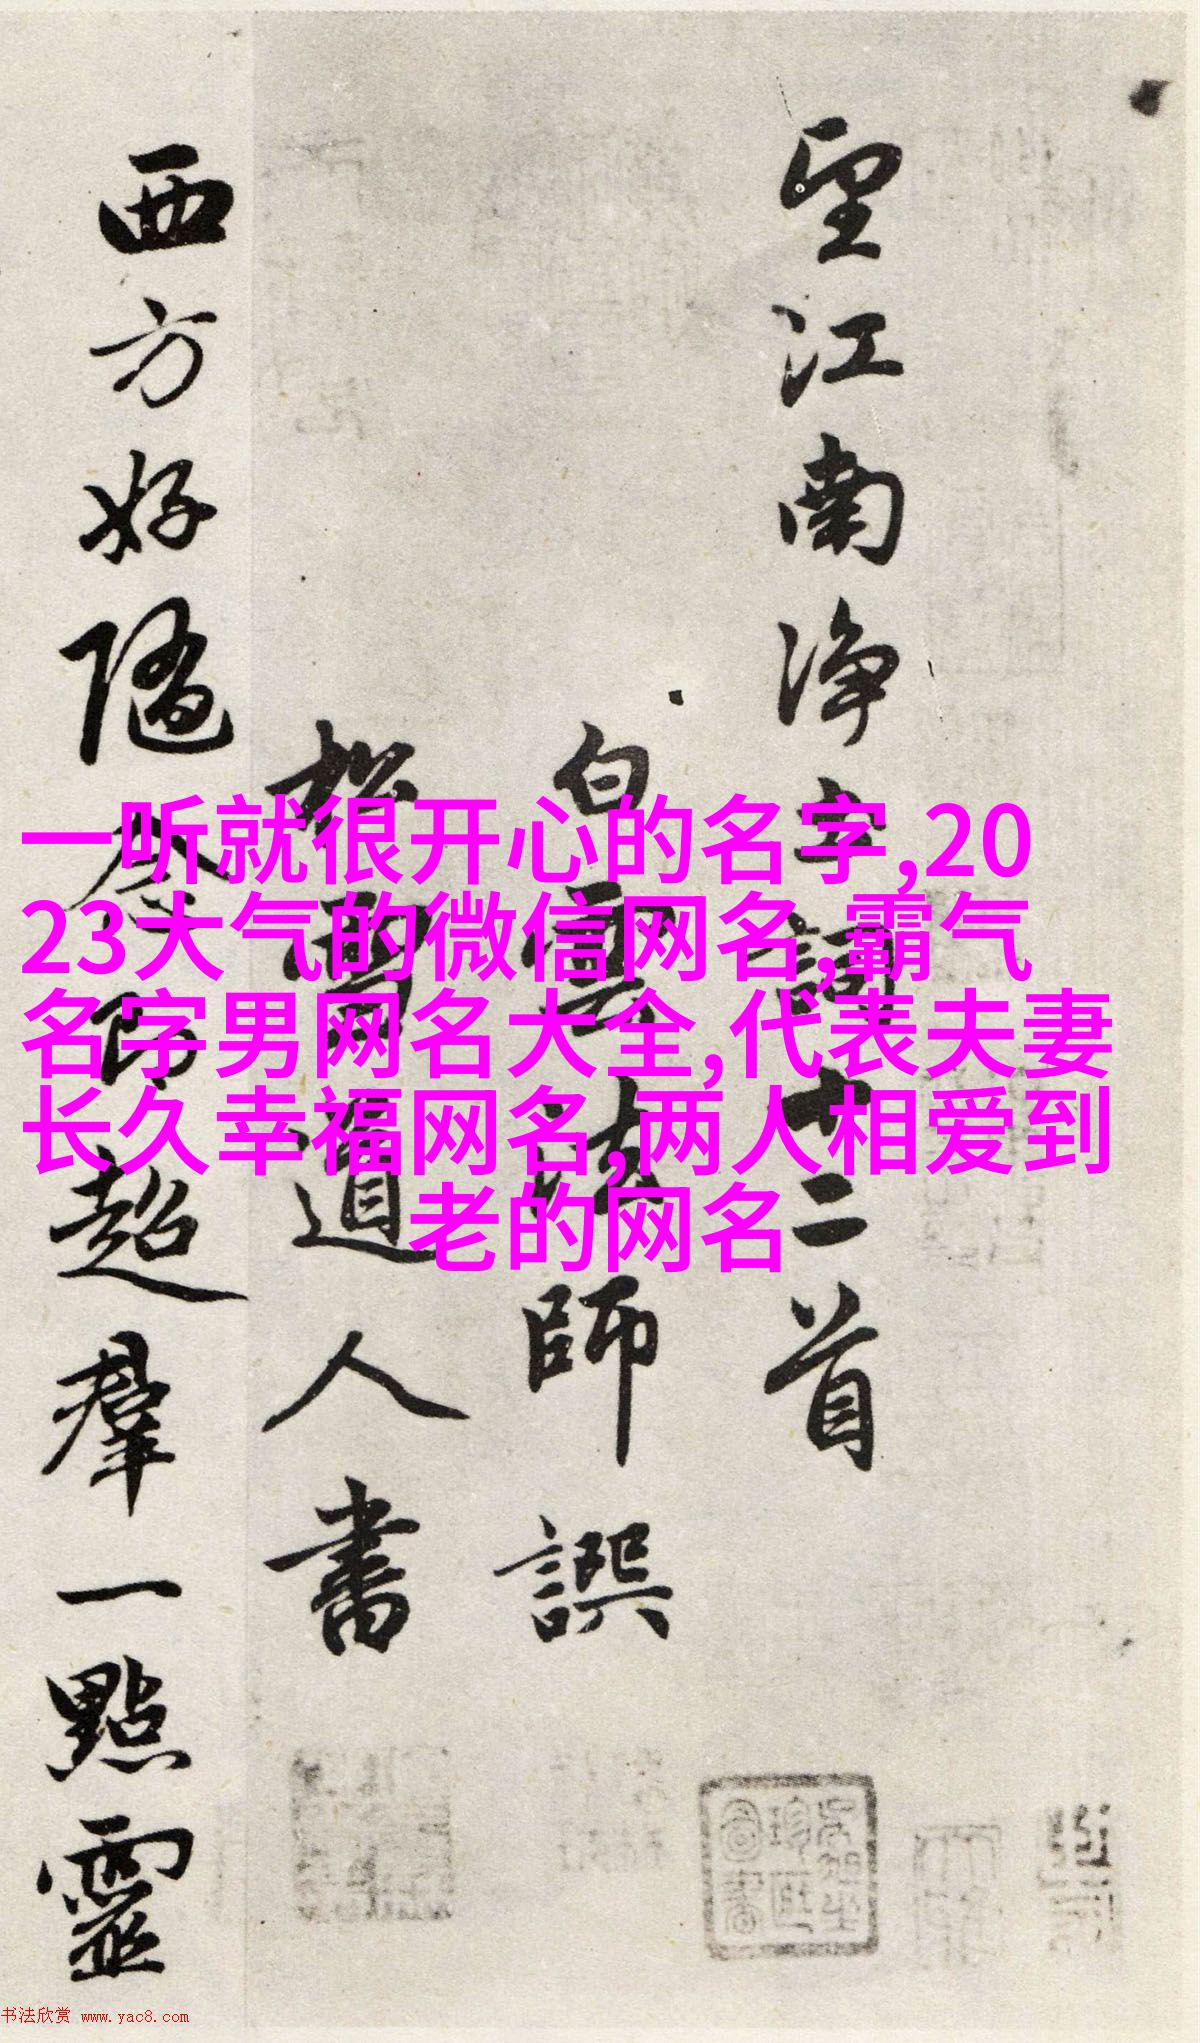 望江南净土詞十二首
白雲法師譔
松雪道人書
西方好隨念即超羣一點靈
一听就很开心的名字,20
23大气的微信网名,霸气
名字男网名大全,代表夫妻
长久幸福网名,两人相爱到
老的网名
书法欣赏 www.yac8.com